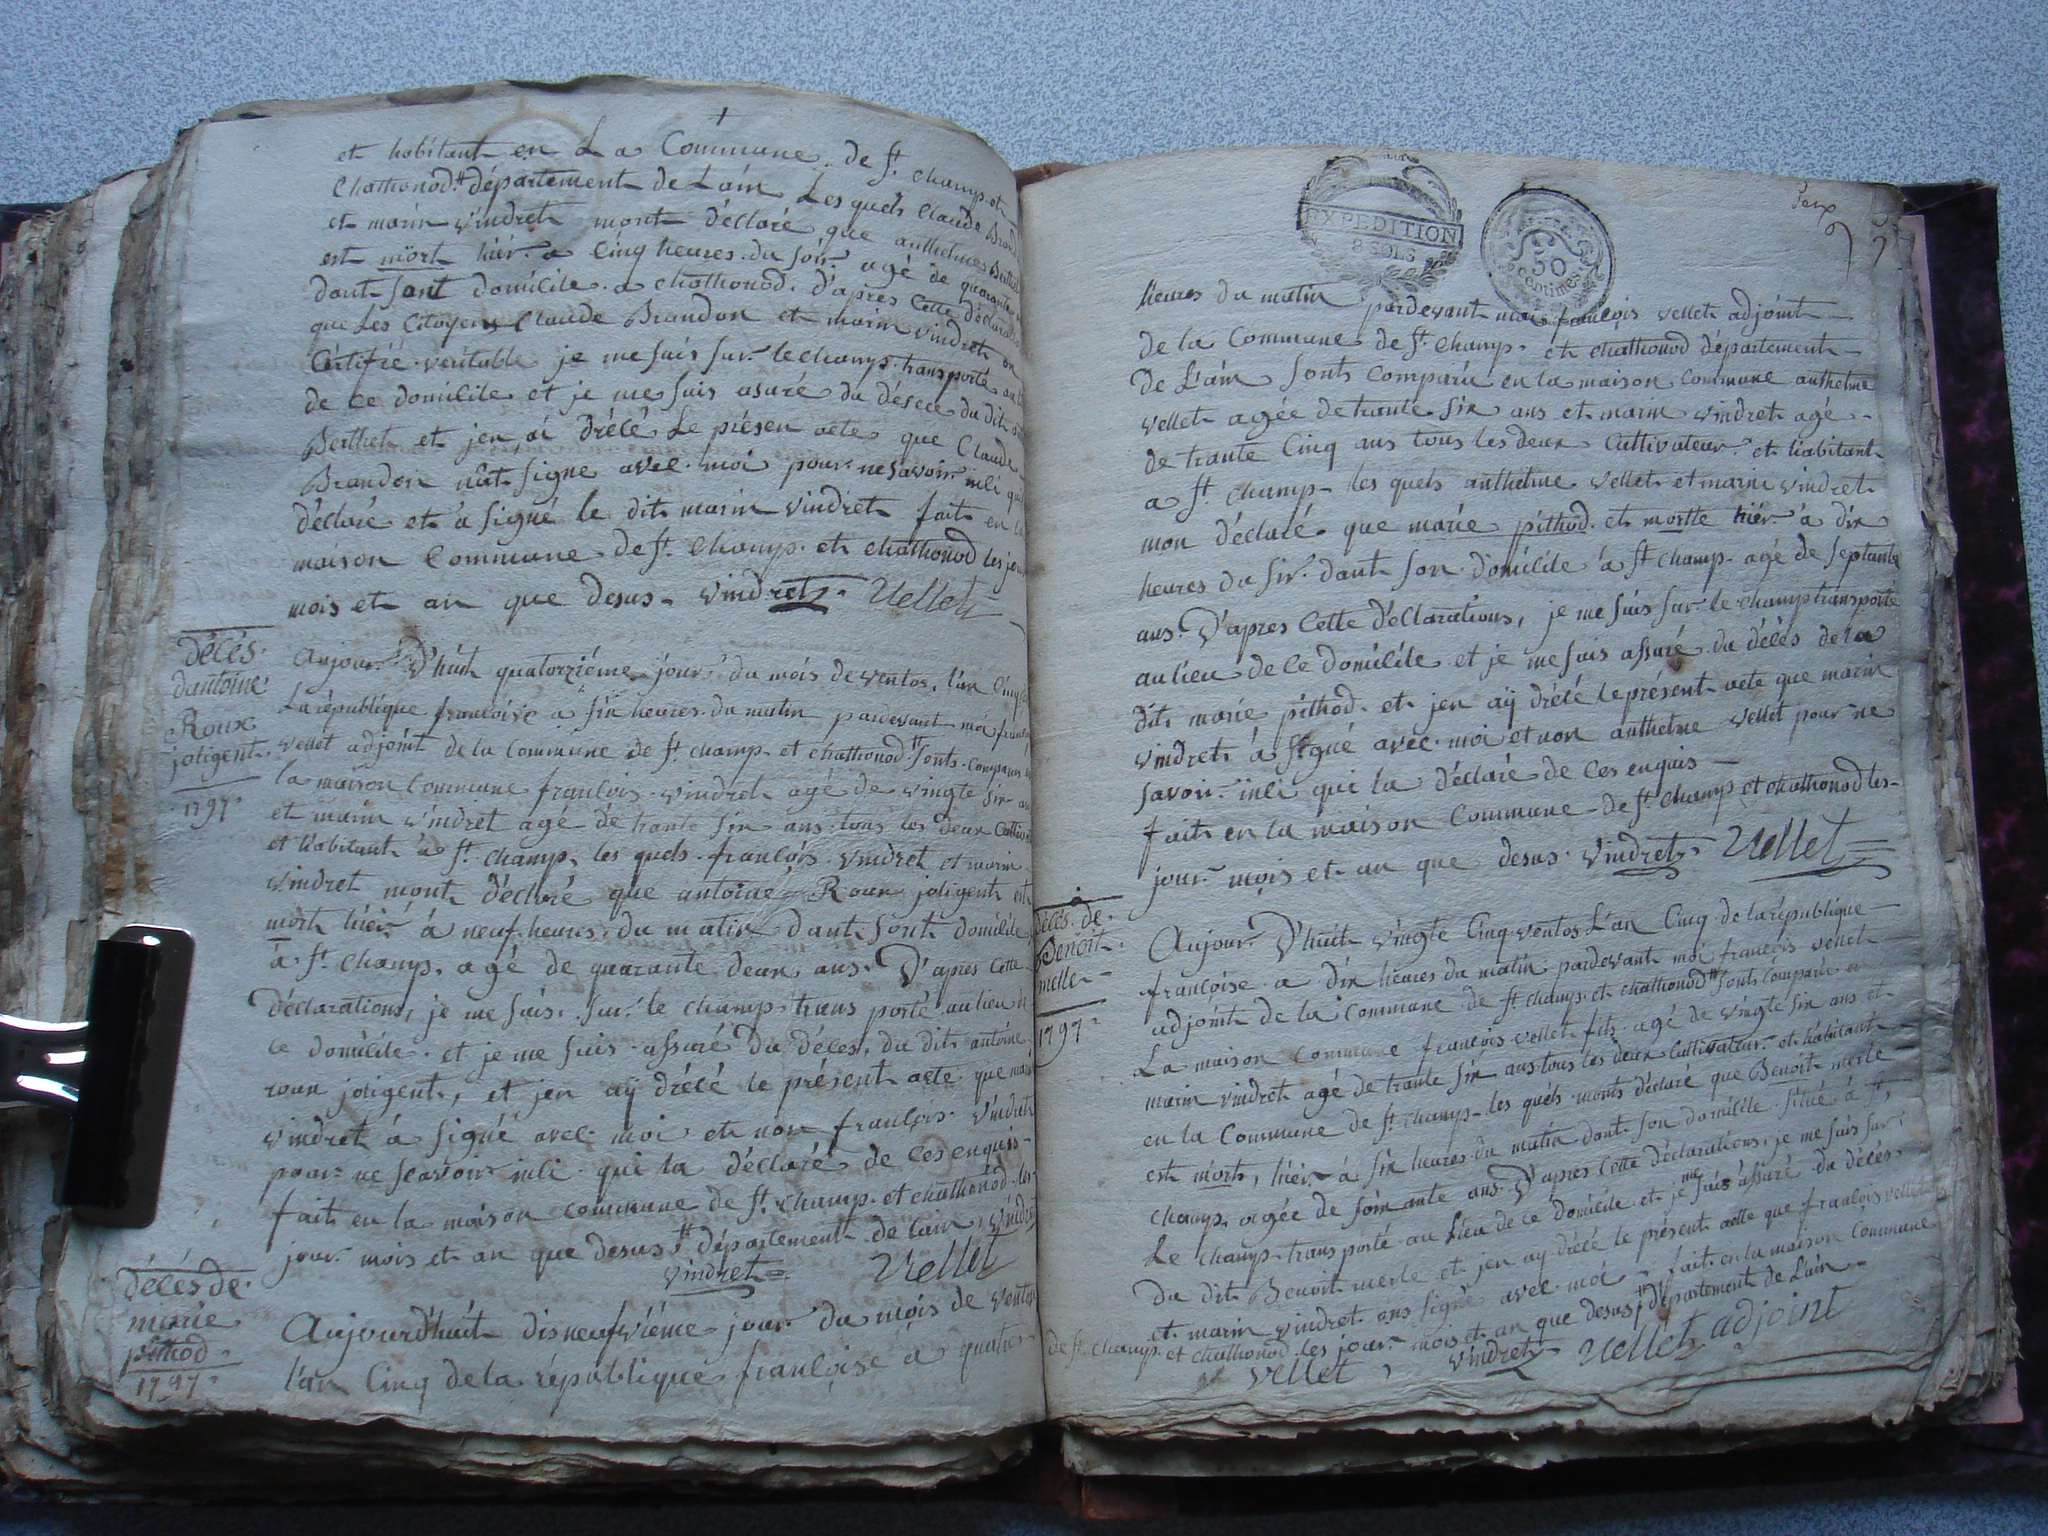 et habitant en La Commune de st champ et
Chathonod département de Lain Les quels Claude Brandon
et marin vindret mont déclaré que anthelme Berthet
est mort hier a Cinq heures du soir agé de quarante
dant sont domicile a chathonod. D'apres Cette déclaration
que Les Citoyens Claude Brandon et marin vindret on
Certifié veritable je me suis sur le champ transporté au
de ce domicile et je me suis asuré du désece du dit
Berthet et jen ai drécé Le présen acte que Claude
Brandon nat signe avec moi pour ne savoir inli qui
déclaré et a signé le dit marin vindret fait en la
maison Commune de st. Champ et chathonod les jour
mois et an que desus. vindret. Vellet
décés
dantoine
Roux
joligent.
1797
Aujour D'huit quatorzième jour du mois de ventos, l'an Cinq de
La république françoise a six heures du matin pardevant moi françois
vellet adjoint de la Commune de st champ et chathonod sont comparus en
la maison Commune françois vindret agé de vingte six ans
et marin vindret agé de trante six ans tous les deux Cultiv
et habitant a st. champ, les quels françois vindret et marin
vindret mont déclaré que antoine Roux joligent est
mort hier à neuf heures du matin dant sont domicile
à st. champ, agé de quarante deux ans. D'apres Cette
déclarations, je me suis sur le champ trans porté au lieu de
ce domicile et je me suis assuré du déces, du dit antoine
roux joligent, et jen aÿ drécé le présent acte que marin
vindret à signé avec moi et non françois vindret
pour ne scavoir inli qui la déclaré de ces enquis
fait en la maison commune de st. champ et chathonod les
jour mois et an que desus département de lain vindret
vindret Vellet
décés de
marie
pithod
1797
Aujourd'huit disneufvième jour du mois de ventos
l'an Cinq de la république françoise a quatre
EXPEDITION
8 SOLS
50
centimes
heures du matin pardevant moi françois vellet adjoint
de la Commune de st. champ et chathonod département
de L'ain sonts comparu en la maison commune anthelme
vellet agée de trante six ans et marin vindret agé
de trante Cinq ans tous les deux Cultivateur et habitant
a st. champ les quels anthelme vellet et marin vindret
mon déclaré que marie pithod et mortte hier à dix
heures du sir dant son domicile à st champ agé de septante
ans. D'apres Cette déclarations, je me suis sur le champ transporté
au lieu de ce domicile et je me suis assuré du décés de la
dit marie pithod et jen aÿ drécé le présent acte que marin
vindret à signé avec moi et non anthelme vellet pour ne
savoir inli qui la déclaré de ces enquis
fait en la maison Commune de st. champ et chathonod les
jour mois et an que desus vindret Vellet
décés de
Benoit
melle
1797
Aujour D'huit vingte Cinq ventos L'an Cinq de la république
françoise a dix heures du matin pardevant moi françois vellet
adjoint de la Commune de st. champ et chathonod sonts Comparu en
La maison Commune françois vellet fils agé de vingte six ans et
marin vindret agé de trante six ans tous les deux Cultivateur et habitant
en la Commune de st. champ les quels monts déclaré que Benoit merle
est mort, hier à six heures du matin dant son domicile situé à st.
champ, agée de soixante ans. D'apres Cette déclarations, je me suis sur
Le champ transporté au Lieu de ce domicile et je me suis assuré du décés
du dit Benoit merle et jen ay drécé le présent actte que françois vellet
et marin vindret ons signé avec moi, fait en la maison Commune
de st. champ et chathonod les jour mois et an que desus département de Lain
vellet, vindret Vellet adjoint